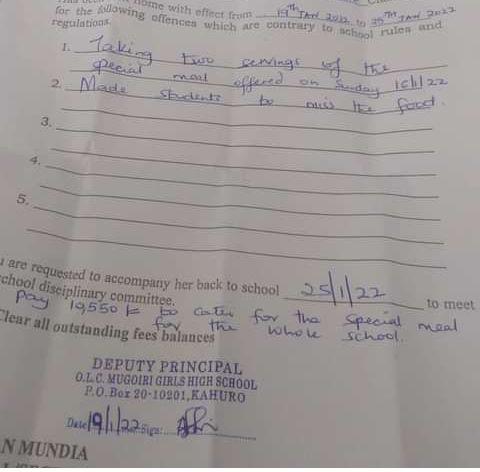 home with effect from 19th JAN 2022 to 25TH JAN 2022
for the following offences which are contrary to school rules and
regulations.
1. Taking two servings of the
special meal offered on Sunday 16/1/22
2. Made students to miss the food.
3.
4.
5.
u are requested to accompany her back to school 25/1/22 to meet
chool disciplinary committee.
Pay 19,550 to cater for the special meal
for the whole school.
Clear all outstanding fees balances
DEPUTY PRINCIPAL
O.L.C. MUGOIRI GIRLS HIGH SCHOOL
P.O. Box 20-10201, KAHURO
Date 19/1/22 Sign:
N MUNDIA